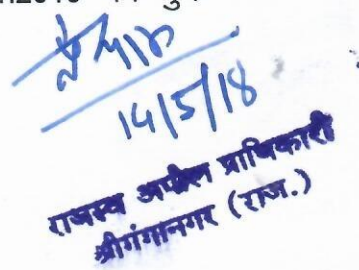 14/5/18
राजस्व अपील प्राधिकारी
श्रीगंगानगर (राज.)